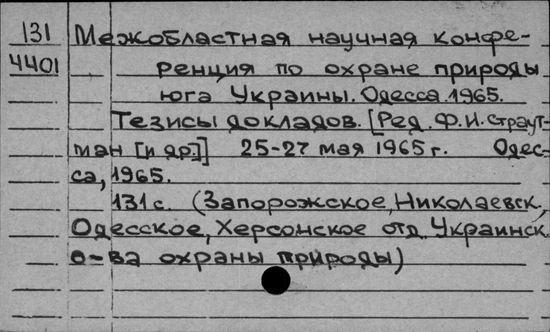 131 Межобластная научная конфе-
4401 ренция по охране природы
юга Украины. Одесса. 1965.
Тезисы докладов. [Ред. Ф.И. Страут-
ман [и др.]] 25-27 мая 1965 г. Одес-
са, 1965.
131 с. (Запорожское, Николаевск,
Одесское, Херсонское отд. Украинск
о-ва охраны природы)